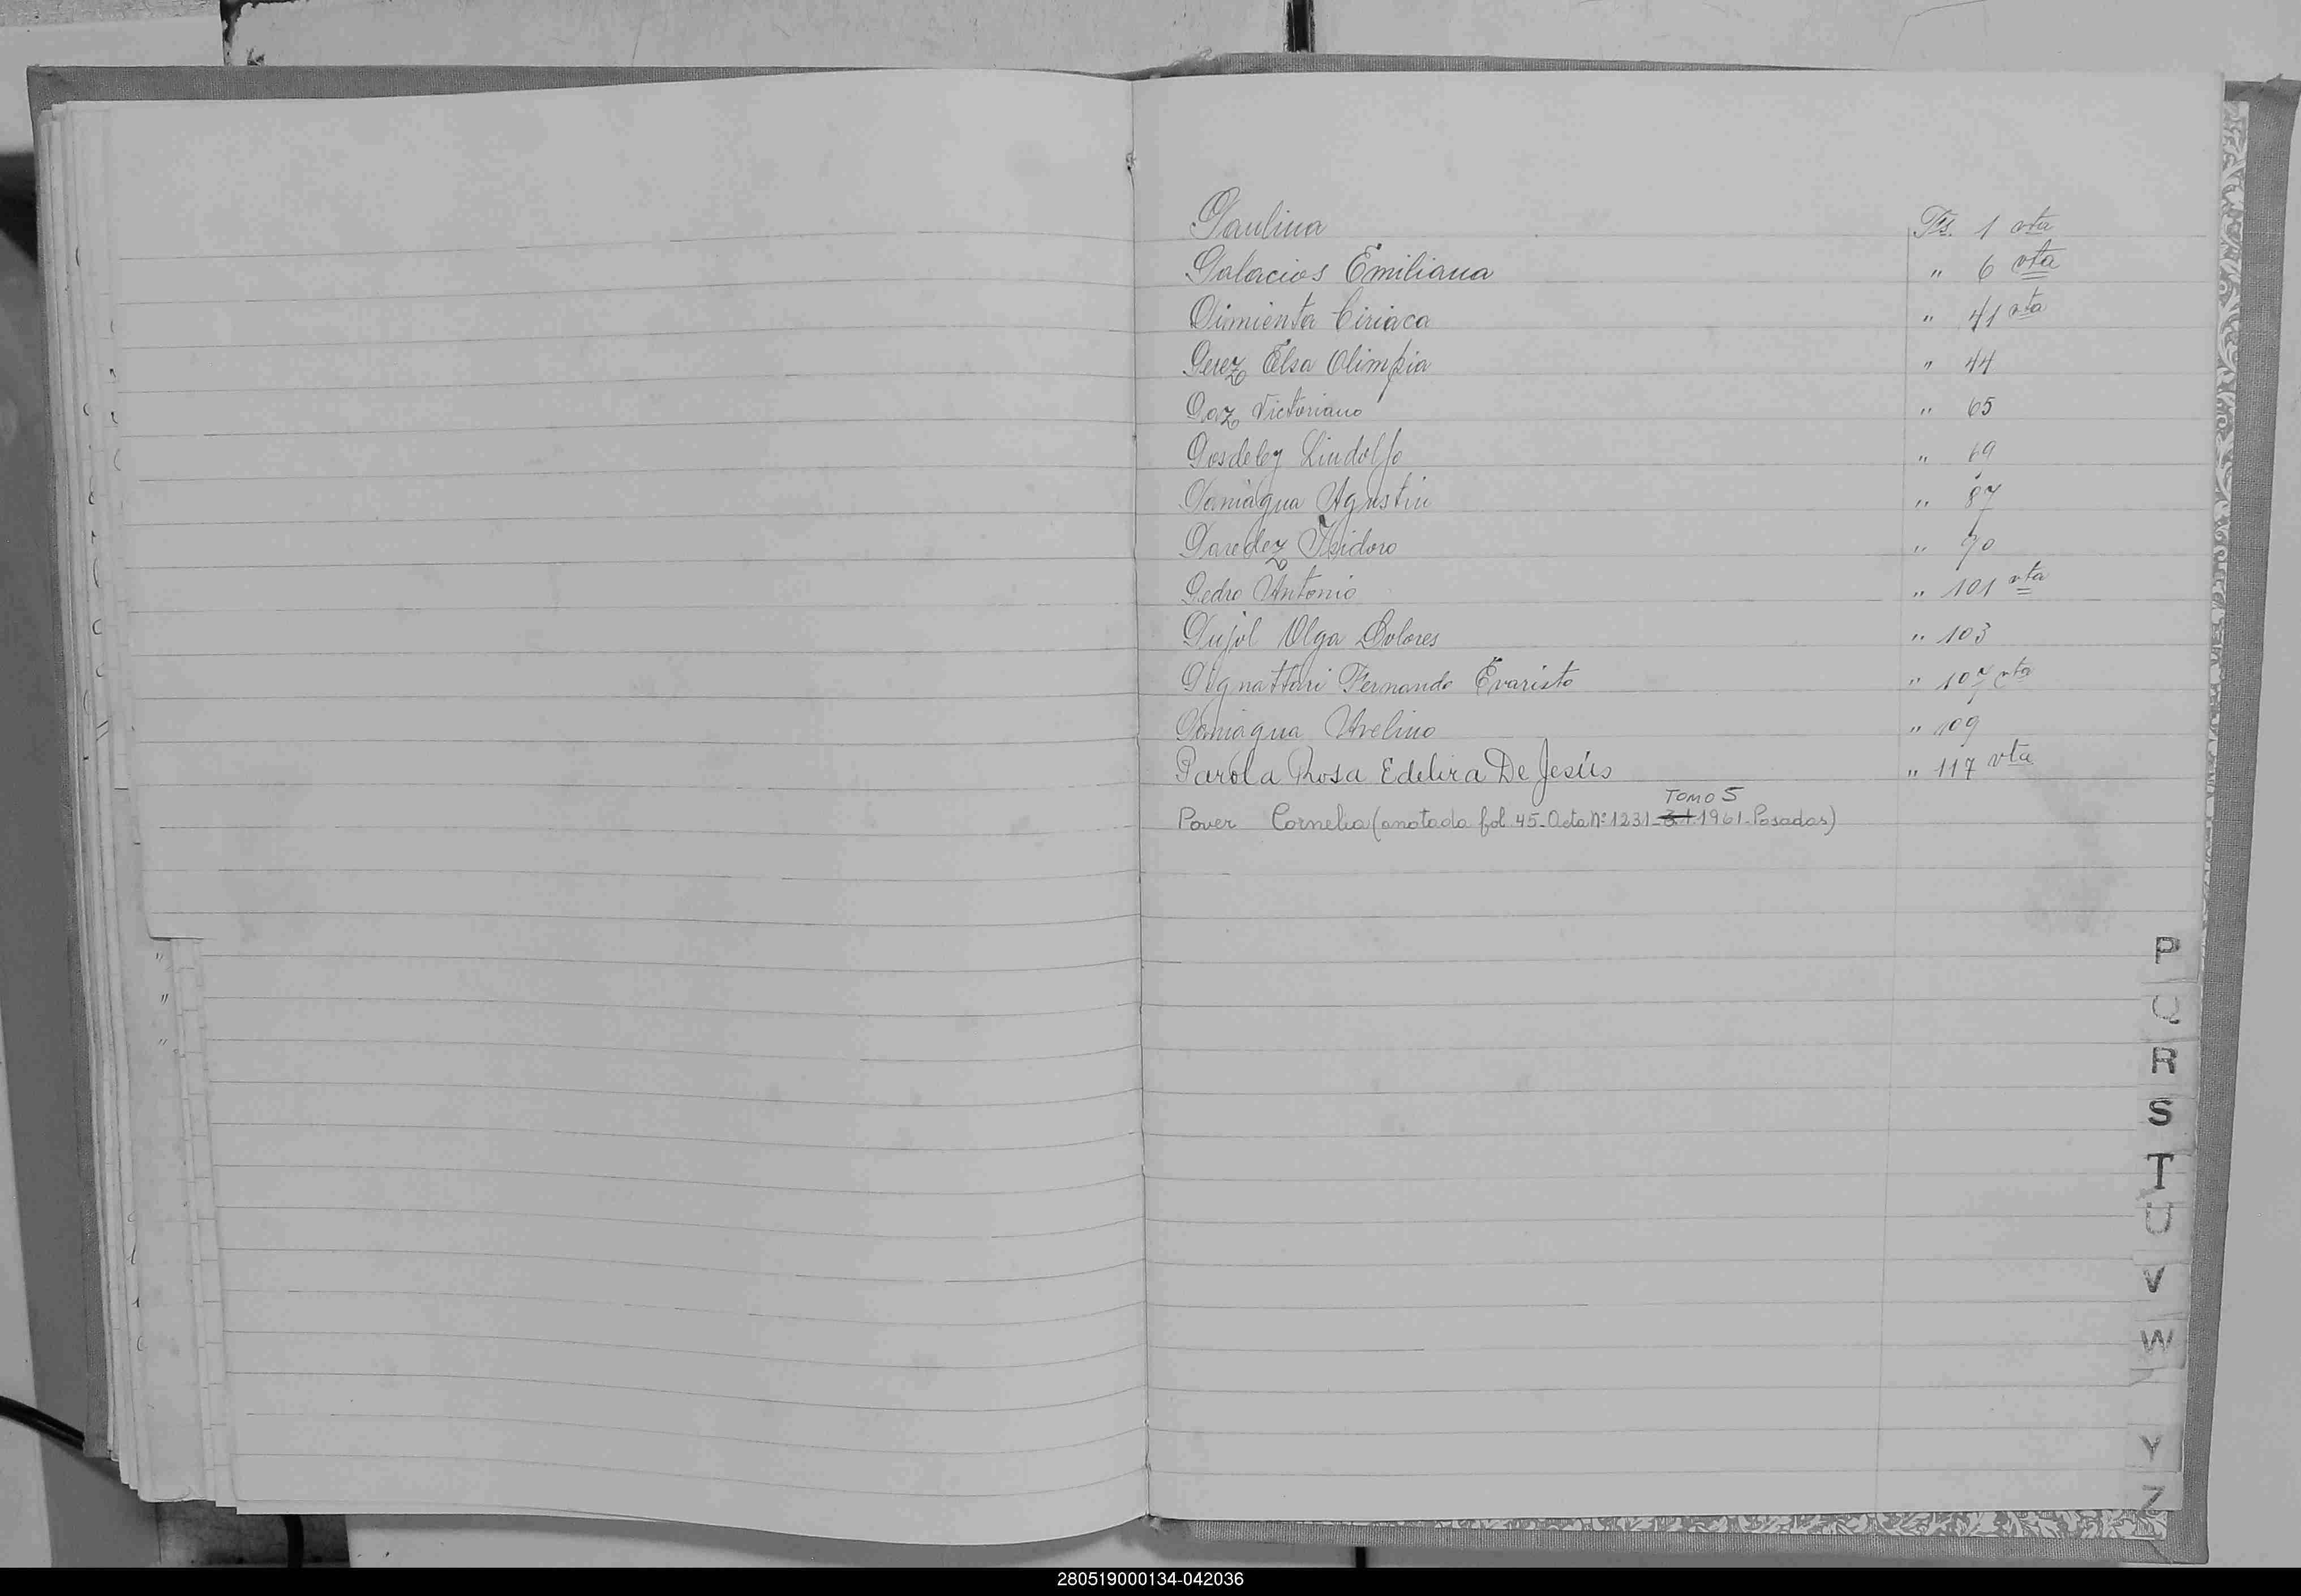 Paulina Fs. 1 vta
Palacios Emiliana " 6 vta
Pimienta Ciriaca " 41 vta
Perez Elsa Olimpia " 44
Paz Victoriano " 65
Posdeley Lindolfo " 69
Paniagua Agustin " 87
Paredez Isidoro " 90
Pedro Antonio " 101 vta
Pujol Olga Dolores " 103
Pignattari Fernando Evaristo " 107 vta
Paniagua Avelino " 109
Parola Rosa Edelira De Jesús " 117 vta
TOMO 5
Pover Cornelia (anotada fol 45-Acta Nº 1231-1961-Posadas)
P
Q
R
S
T
U
V
W
Y
Z
280519000134-042036